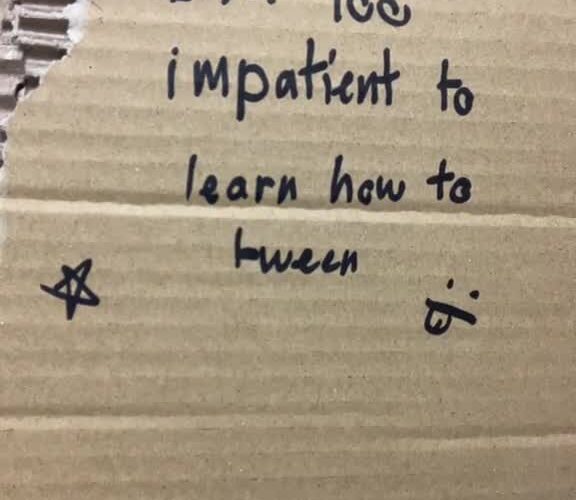 too
impatient to
learn how to
tween